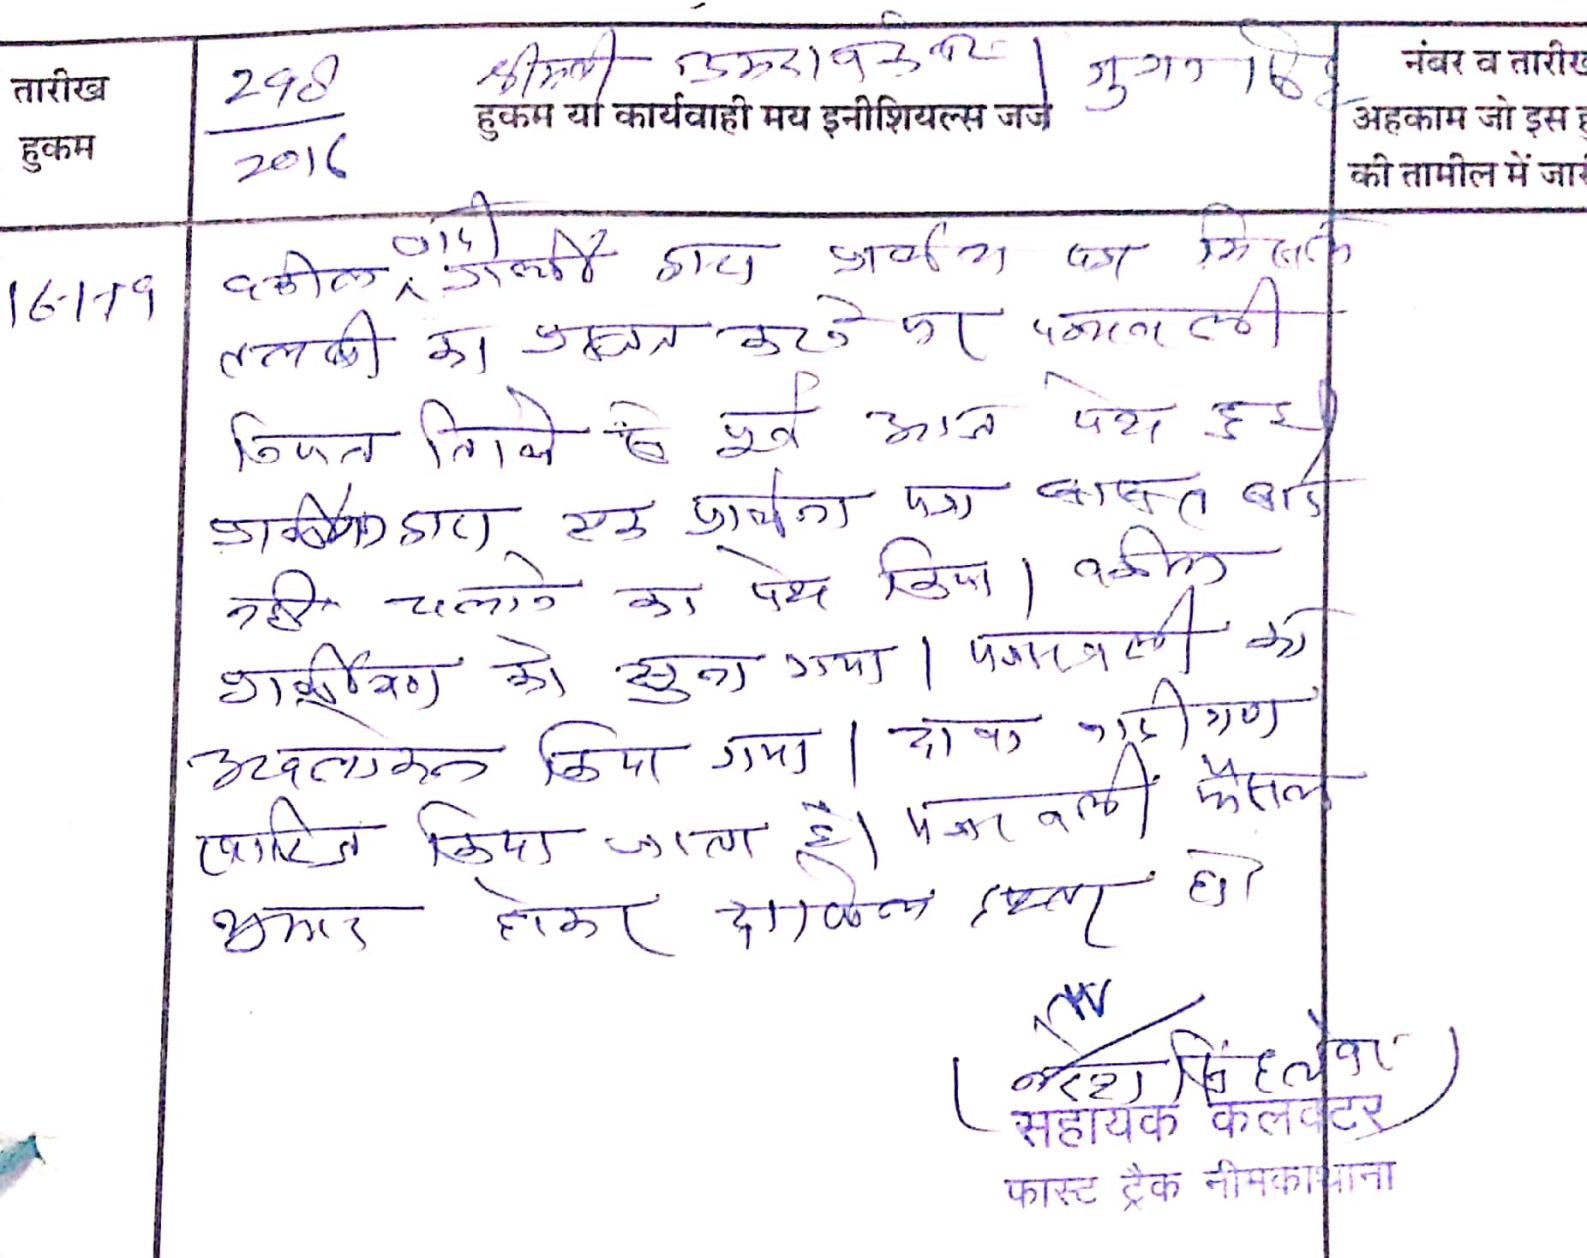 तारीख
हुकम
298
2016
श्रीमती उमराव कंवर / गुमान सिंह
हुकम या कार्यवाही मय इनीशियल्स जज
नंबर व तारीख
अहकाम जो इस हु
की तामील में जारी
16-1-19
वकील वादी प्रार्थी द्वारा प्रार्थना पत्र मिसल
तलबी का प्रस्तुत करने पर पत्रावली
नियत तिथि से पूर्व आज पेश हुई
प्रार्थीगण द्वारा एक प्रार्थना पत्र बाबत वाद
नही चलाने का पेश किया। वकील
प्रार्थीगण को सुना गया। पत्रावली का
अवलोकन किया गया। दावा वादीगण
खारिज किया जाता है। पत्रावली फैसल
शुमार होकर दाखिल दफ्तर हो
सहायक कलक्टर
फास्ट ट्रैक नीमकाथाना